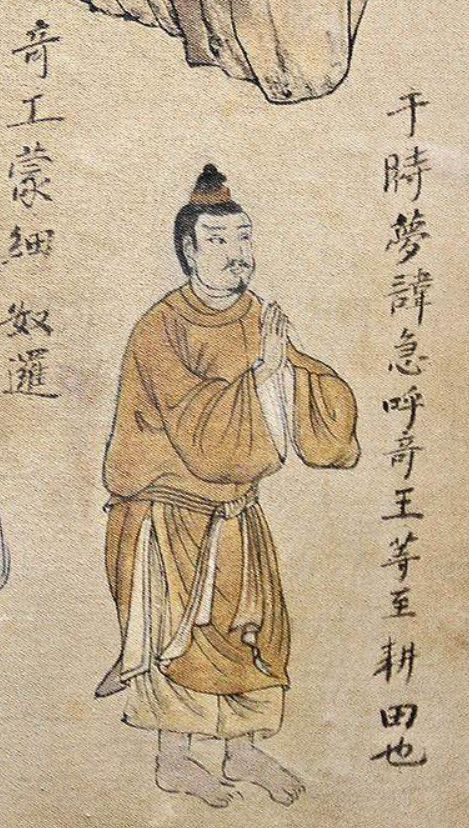 于時夢諱急呼奇王等至耕田也
奇工蒙細奴邏